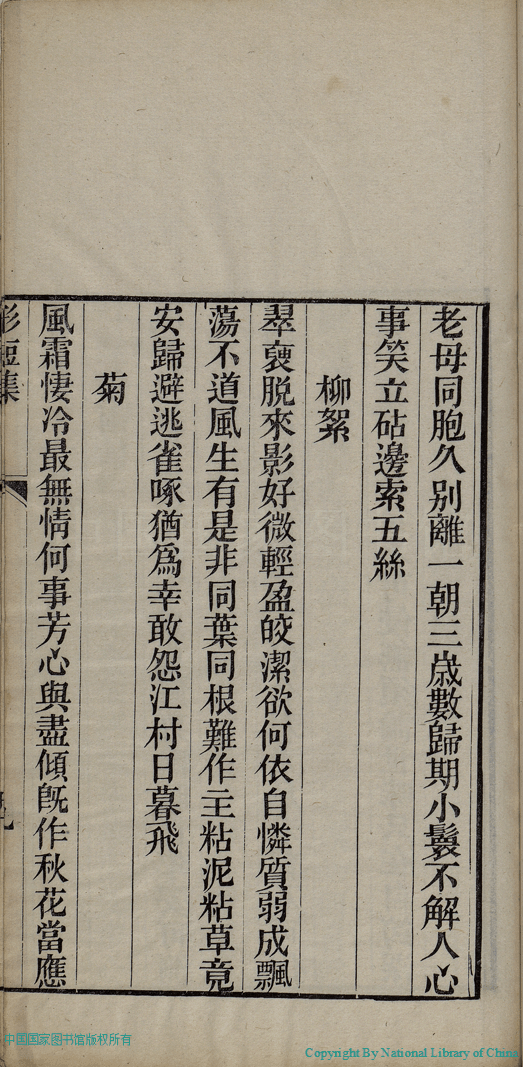 老母同胞久別離一朝三歲數歸期小鬟不解人心
事笑立砧邊索五絲
柳絮
翠褏脫來影好微輕盈皎潔欲何依自憐質弱成飄
蕩不道風生有是非同葉同根難作主粘泥粘草竟
安歸避逃雀啄猶為幸敢怨江村日暮飛
菊
風霜悽冷最無情何事芳心與盡傾旣作秋花當應
中国国家图书馆版权所有
Copyright By National Library of China